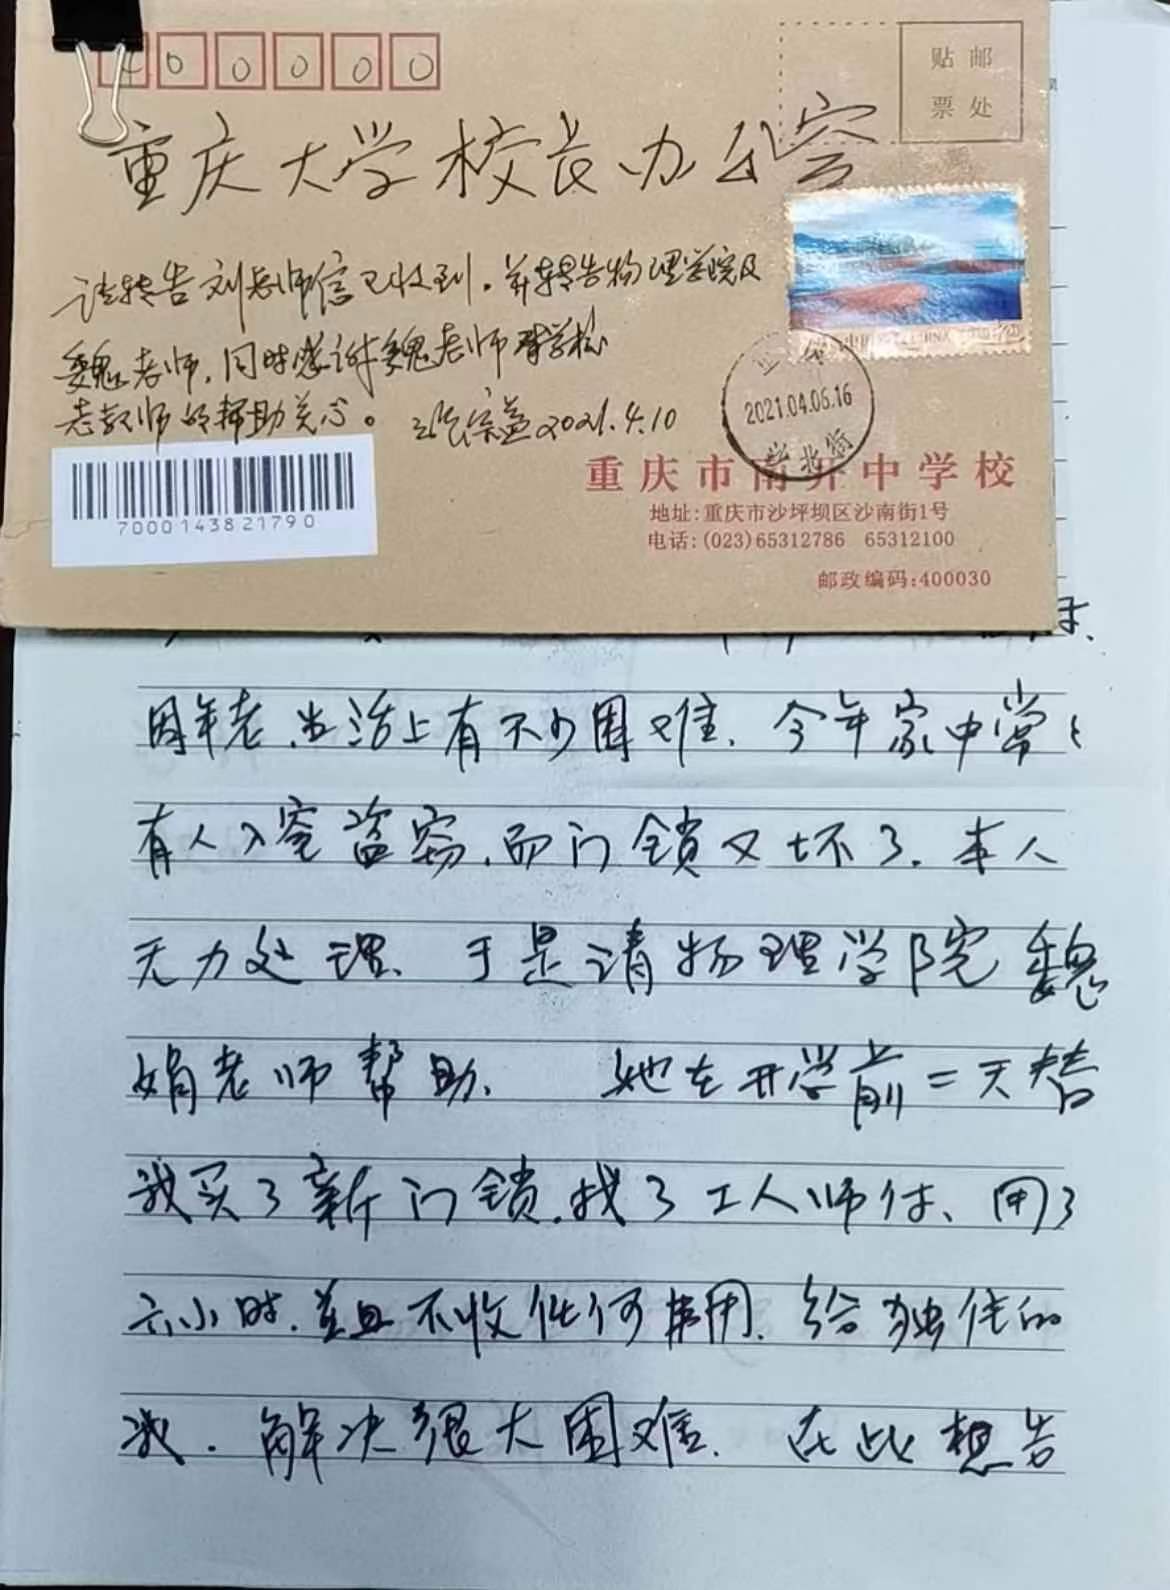 400000
贴邮
票处
重庆大学校长办公室
请转告刘老师信已收到。并转告物理学院及
魏老师,同时感谢魏老师对学校
老教师的帮助关心。 张宗益2021.4.10
2021.04.06.16
北街
重庆市南开中学校
地址:重庆市沙坪坝区沙南街1号
电话:(023)65312786 65312100
邮政编码:400030
7000143821790
因年老、生活上有不少困难、今年家中常々
有人入室盗窃,而门锁又坏了.本人
无力处理、于是请物理学院魏
娟老师帮助、她在开学前二天替
我买了新门锁,找了工人师付、用了
六小时,并且不收任何费用、给独住的
我.解决很大困难.在此想告